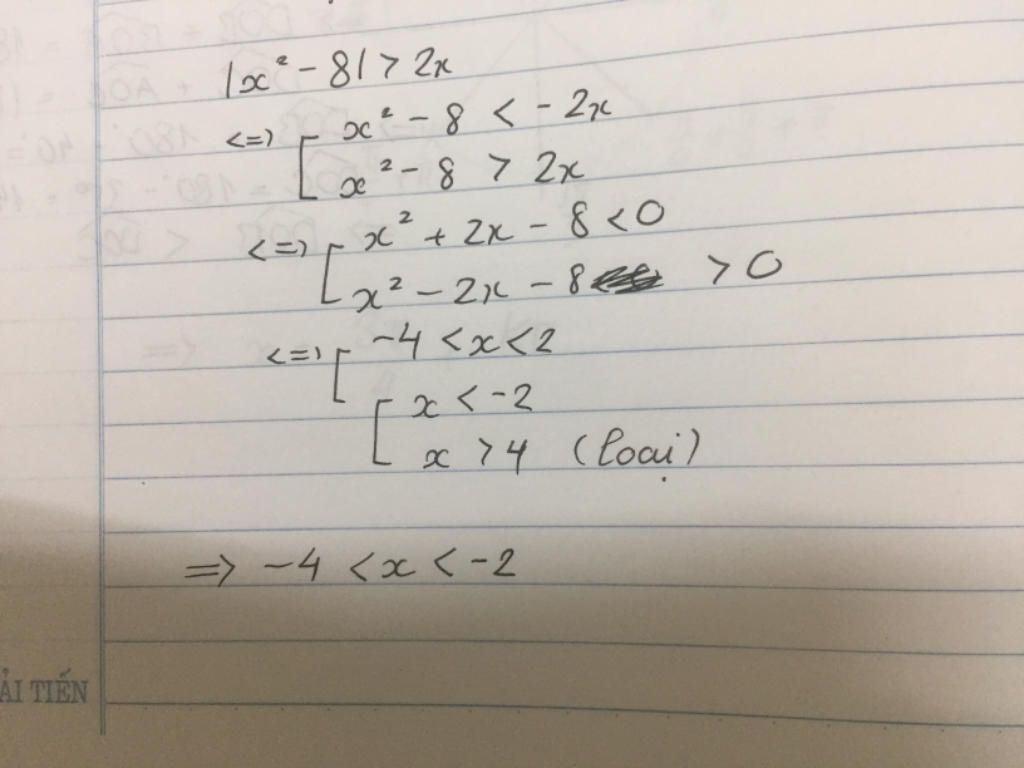 |x² - 8| > 2x
<=> [ x² - 8 < - 2x
x² - 8 > 2x
<=> [ x² + 2x - 8 < 0
x² - 2x - 8 > 0
<=> [ -4 < x < 2
[ x < -2
x > 4 (loại)
=> -4 < x < -2
ẢI TIẾN